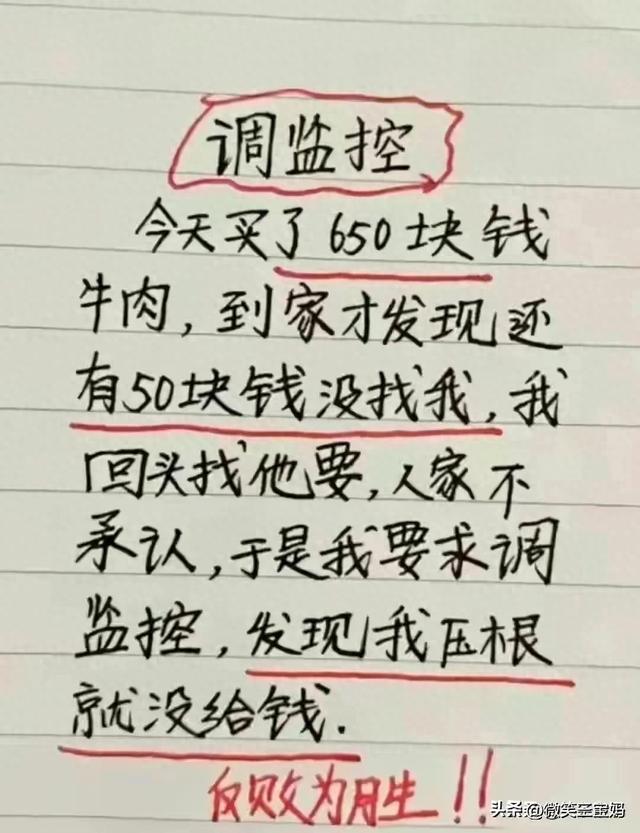 调监控
今天买了650块钱
牛肉，到家才发现还
有50块钱没找我，我
回头找他要，人家不
承认，于是我要求调
监控，发现我压根
就没给钱.
反败为胜！！
头条@微笑至宝妈